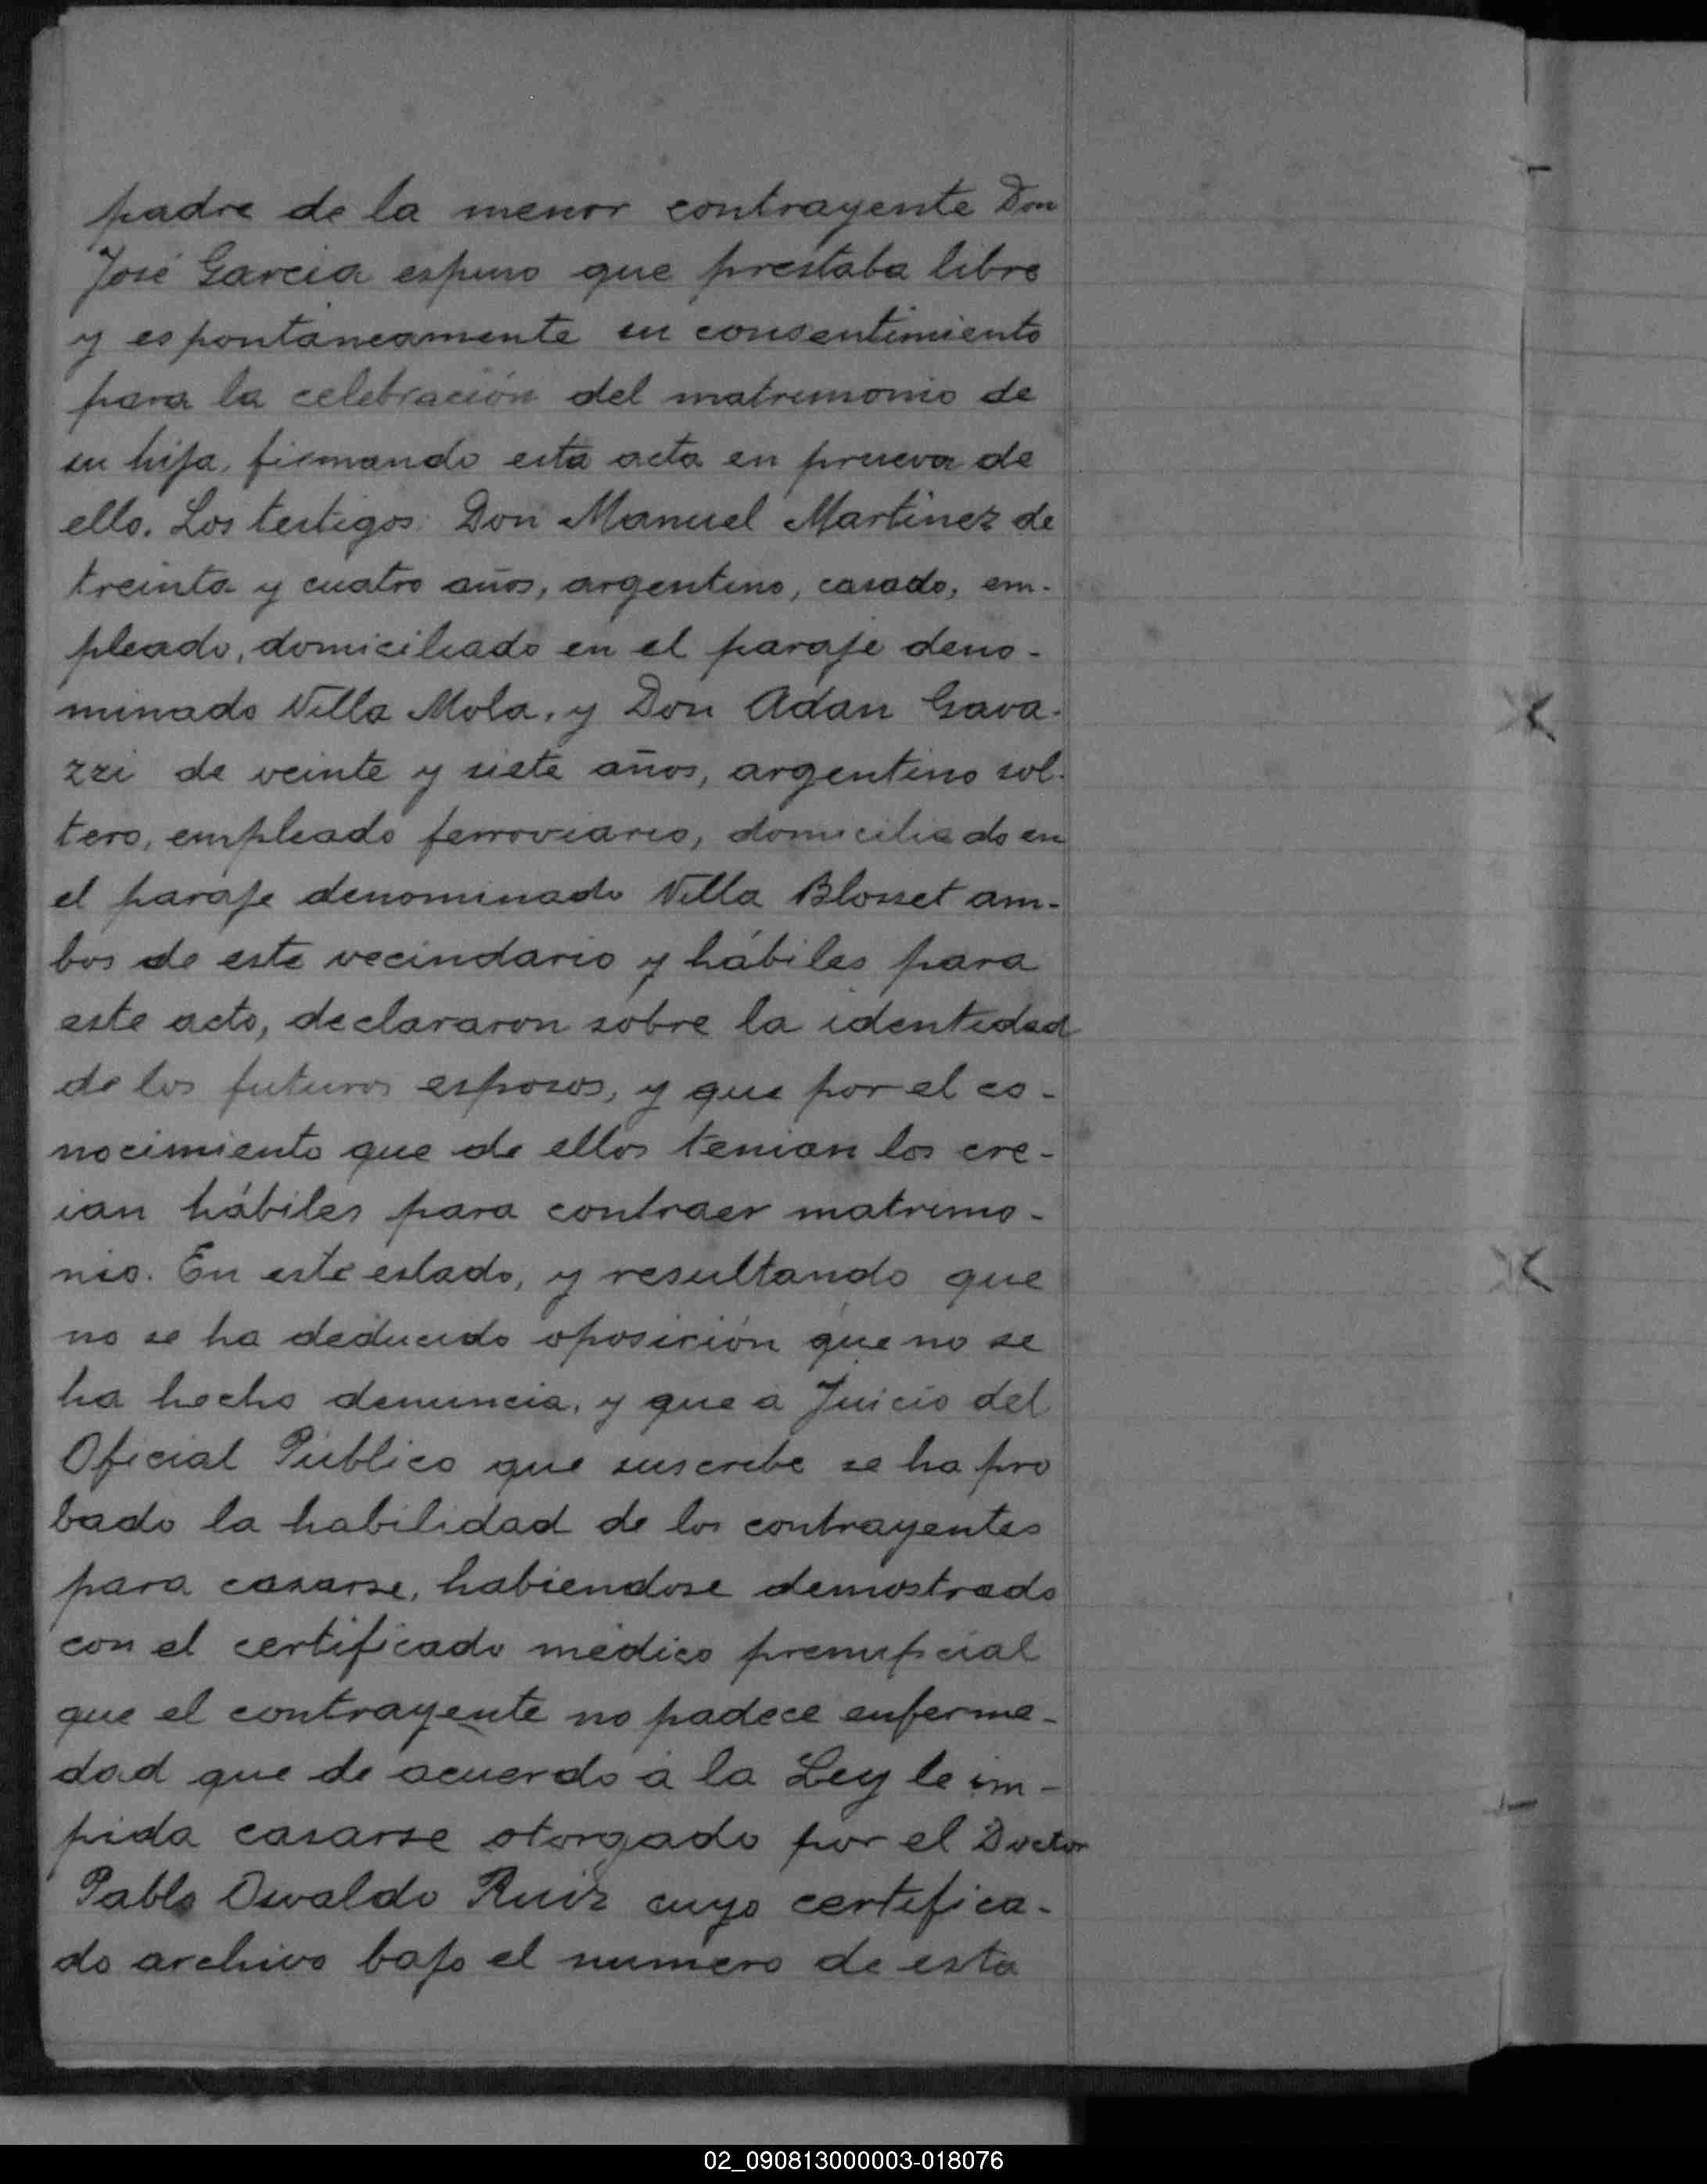 padre de la menor contrayente Don
José Garcia espuso que prestaba libre
y espontaneamente su consentimiento
para la celebración del matrimonio de
su hija, firmando esta acta en prueva de
ello. Los testigos: Don Manuel Martinez de
treinta y cuatro años, argentino, casado, em-
pleado, domiciliado en el paraje deno-
minado Villa Mola, y Don Adan Gava-
zzi de veinte y siete años, argentino sol-
tero, empleado ferroviario, domiciliado en
el paraje denominado Villa Blosset am-
bos de este vecindario y hábiles para
este acto, declararon sobre la identidad
de los futuros esposos, y que por el co-
nocimiento que de ellos tenian los cre-
ian hábiles para contraer matrimo-
nio. En este estado, y resultando que
no se ha deducido oposición que no se
ha hecho denuncia, y que a Juicio del
Oficial Público que suscribe se ha pro
bado la habilidad de los contrayentes
para casarse, habiendose demostrado
con el certificado médico prenupcial
que el contrayente no padece enferme-
dad que de acuerdo a la Ley le im-
pida casarse otorgado por el Doctor
Pablo Osvaldo Ruiz cuyo certifica-
do archivo bajo el numero de esta
02_090813000003-018076